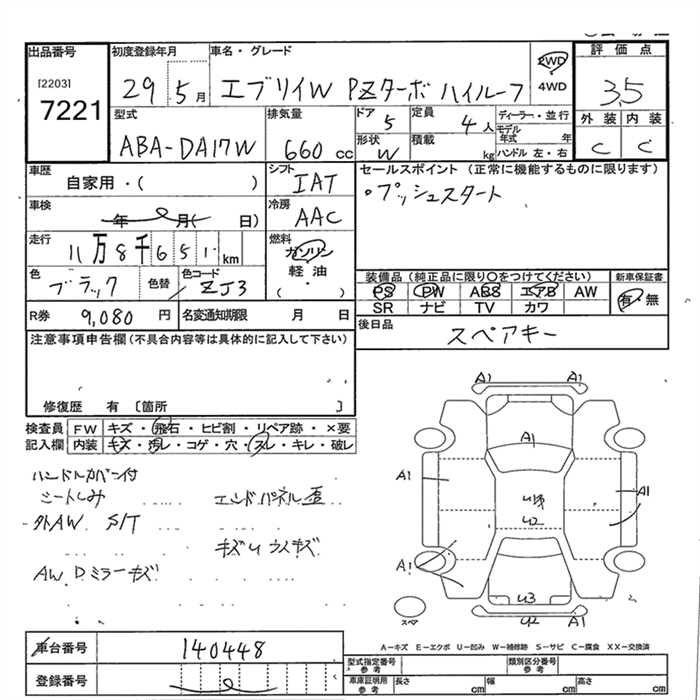 出品番号
[2203]
7221
初度登録年月
29 5月
車名・グレード
エブリイW PZターボ ハイルーフ
2WD
4WD
評価点
3.5
外装 内装
C C
型式
ABA-DA17W
排気量
660 cc
ドア
5
定員
4人
形状
W
積載
kg
ディーラー・並行
モデル年式 年
ハンドル 左・右
車歴
自家用・( )
シフト
IAT
セールスポイント (正常に機能するものに限ります)
・プッシュスタート
車検
年 月( 日)
冷房
AAC
走行
11万8千651km
燃料
ガソリン
軽油
( )
色
ブラック
色替
色コード
ZJ3
装備品 (純正品に限り〇をつけてください)
新車保証書
PS PW ABS エアB AW
有・無
SR ナビ TV カワ
R券
9,080円
名変通知期限 月 日
後日品
スペアキー
注意事項申告欄(不具合内容等は具体的に記入して下さい)
修復歴 有 〔箇所 〕
検査員記入欄
FW キズ・飛石・ヒビ割・リペア跡・×要
内装 キズ・汚レ・コゲ・穴・スレ・キレ・破レ
ハンドルカバー付
シートしみ
エンドパネル歪
外AW S/T
キズUウスキズ
AW Dミラーキズ
A1 A1
A1
A1 A1
U2
A1
U3
U2 A1
スペア
A-キズ E-エクボ U-凹み W-補修跡 S-サビ C-腐食 XX-交換済
車台番号
140448
登録番号
型式指定番号 参考
類別区分番号 参考
車庫証明用 参考
長さ cm
幅 cm
高さ cm